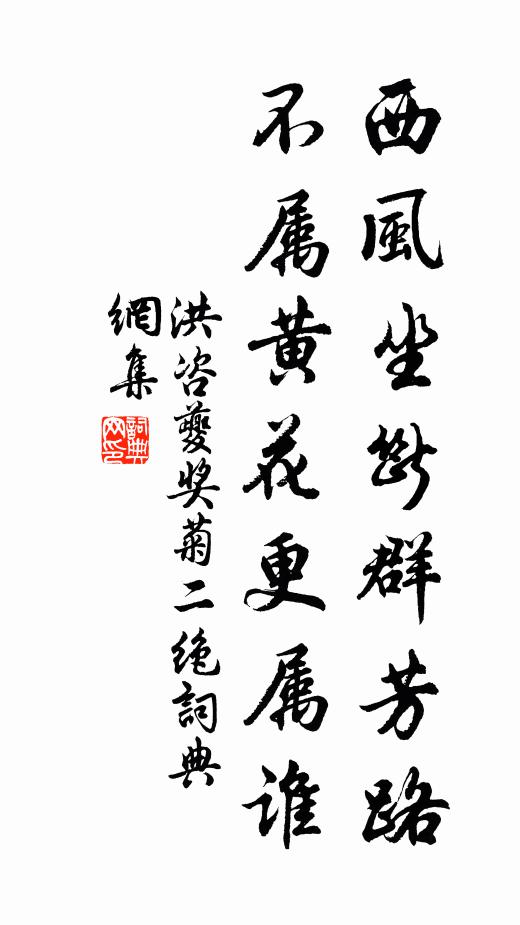 西風坐斷群芳路
不属黄花更属誰
洪咨夔奖菊二绝詞典
網集
詞典
网印